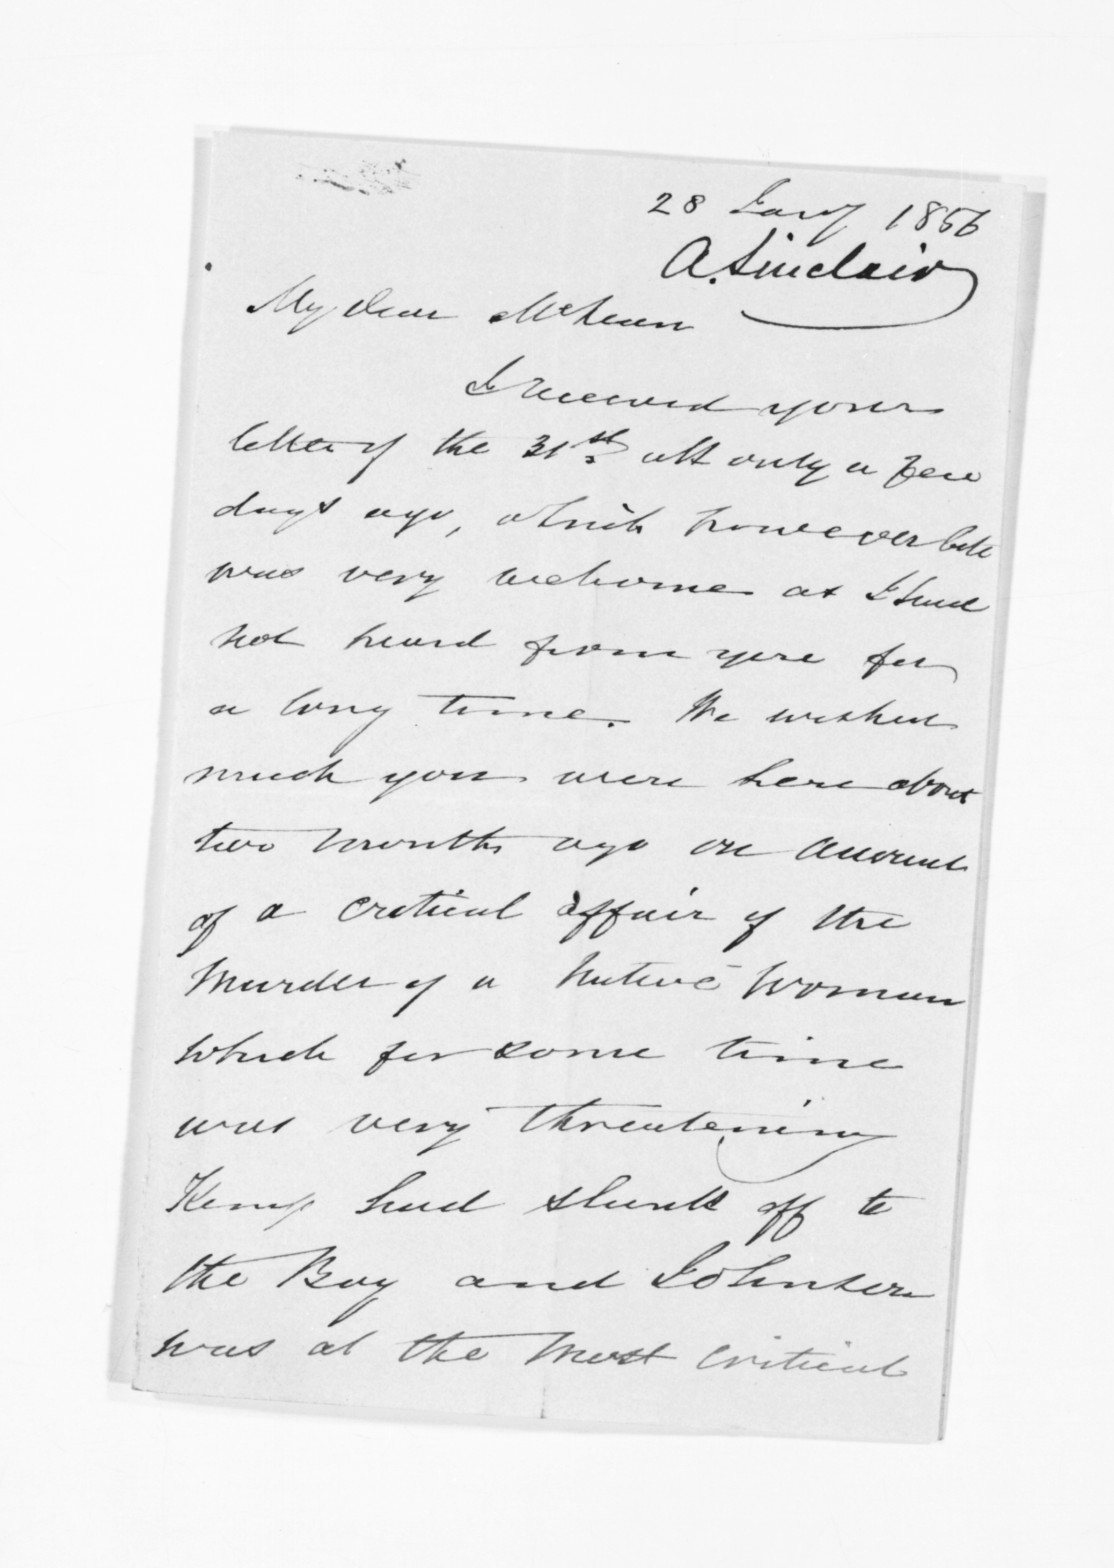 28 Jany 1856
A. Sinclair
My dear McLean
I received your
letter of the 31st ult only a few
days ago, which however late
was very welcome as I had
not heard from you for
a long time. We wished
much you were here about
two months ago on account
of a critical affair of the
Murder of a Native Woman
which for some time
was very threatening
Kemp had slunk off to
the Bay and Johnson
was at the most critical